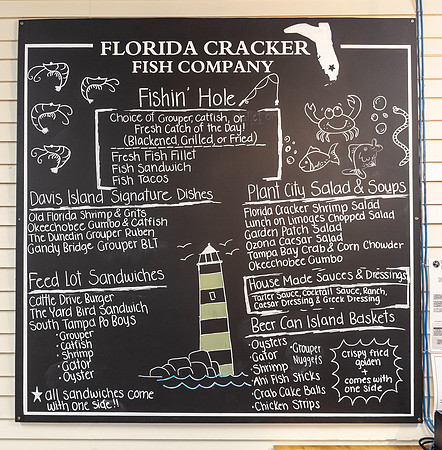 FLORIDA CRACKER
FISH COMPANY
Fishin' Hole
Choice of Grouper, Catfish, or
Fresh Catch of the Day!
(Blackened, Grilled, or Fried)
Fresh Fish Fillet
Fish Sandwich
Fish Tacos
Davis Island Signature Dishes
Old Florida Shrimp & Grits
Okeechobee Gumbo & Catfish
The Dunedin Grouper Ruben
Gandy Bridge Grouper BLT
Feed Lot Sandwiches
Cattle Drive Burger
The Yard Bird Sandwich
South Tampa Po Boys
• Grouper
• Catfish
• Shrimp
• Gator
• Oyster
all sandwiches come
with one side!!
Plant City Salad & Soups
Florida Cracker Shrimp Salad
Lunch on Limoges Chopped Salad
Garden Patch Salad
Ozona Caesar Salad
Tampa Bay Crab & Corn Chowder
Okeechobee Gumbo
House Made Sauces & Dressings
Tarter Sauce, Cocktail Sauce, Ranch,
Caesar Dressing & Greek Dressing
Beer Can Island Baskets
• Oysters
• Gator
• Shrimp
• Ahi Fish Sticks
• Crab Cake Balls
• Chicken Strips
• Grouper
Nuggets
crispy fried
golden
+
comes with
one side